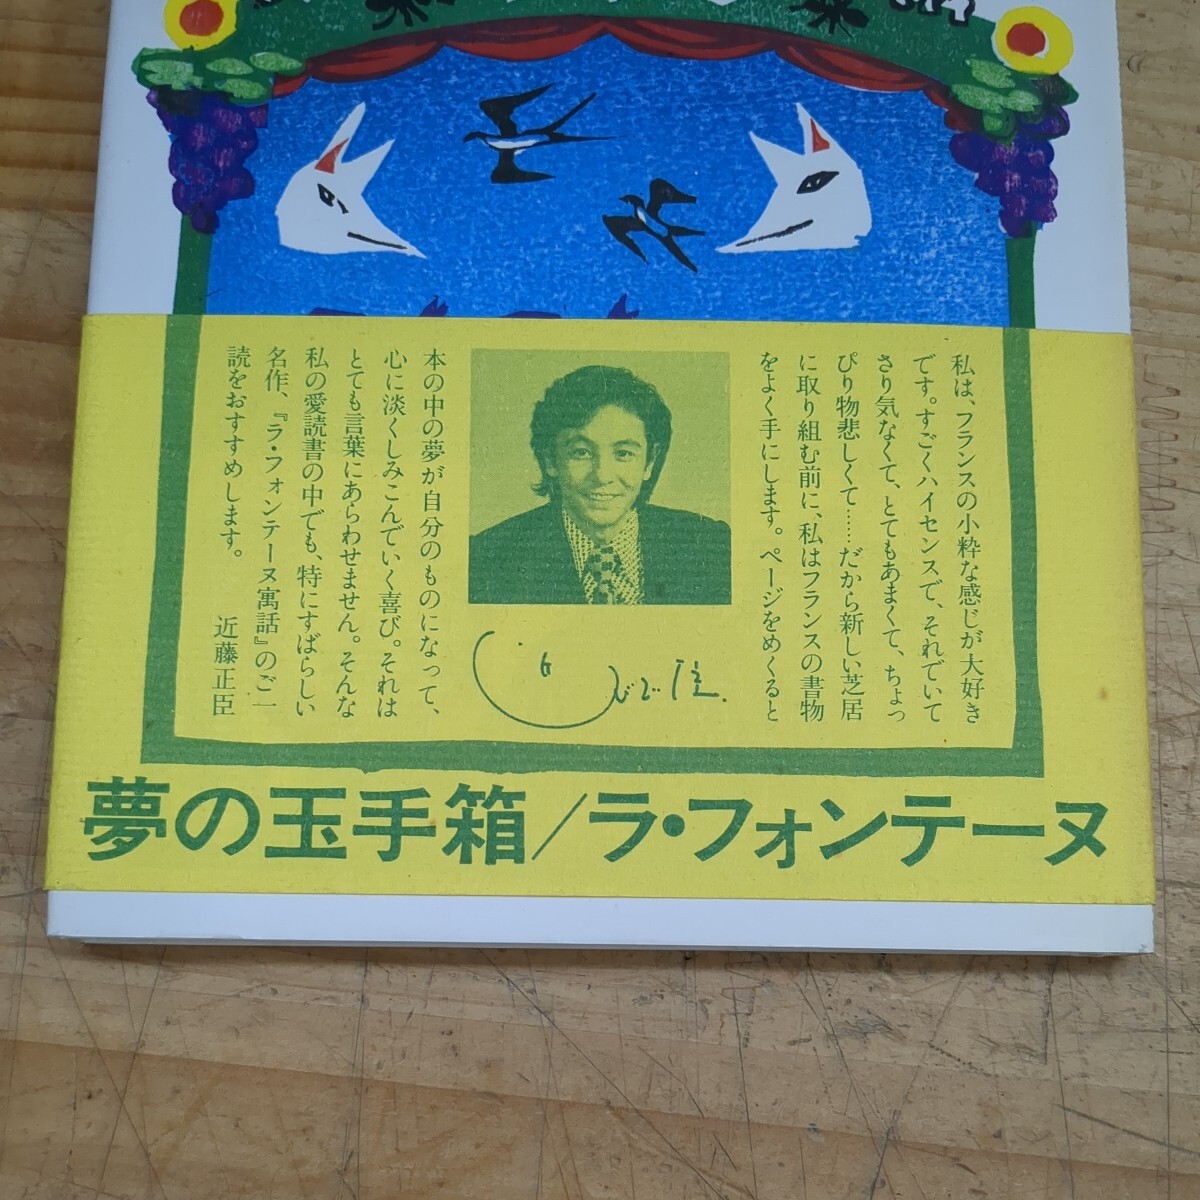 私は、フランスの小粋な感じが大好き
です。すごくハイセンスで、それでいて
さり気なくて、とてもあまくて、ちょっ
ぴり物悲しくて……だから新しい芝居
に取り組む前に、私はフランスの書物
をよく手にします。ページをめくると
本の中の夢が自分のものになって、
心に淡くしみこんでいく喜び。それは
とても言葉にあらわせません。そんな
私の愛読書の中でも、特にすばらしい
名作、『ラ・フォンテーヌ寓話』のご一
読をおすすめします。
近藤正臣
夢の玉手箱/ラ・フォンテーヌ